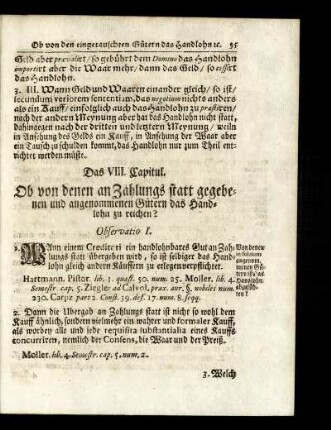 Ob von den eingetauschten Gütern das Handlohn ꝛc. 95
Geld aber prævalirt / so gebührt dem Domino das Handlohn
importirt aber die Waar mehr / dann das Geld / so cessirt
das Handlohn.
3. III. Wann Geld und Waaren einander gleich / so ist /
secundum veriorem sententiam, das negotium nichts anders
als ein Kauff / einfolglich auch das Handlohn zu præstiren /
nach der andern Meynung aber hat das Handlohn nicht statt,
dahingegen nach der dritten und letztern Meynung / weiln
in Ansehung des Gelds ein Kauff, in Ansehung der Waar aber
ein Tausch zu schulden kommt, das Handlohn nur zum Theil ent-
richtet werden müste.
Das VIII. Capitul.
Ob von denen an Zahlungs statt gegebe-
nen und angenommenen Gütern das Hand-
lohn zu reichen?
Observatio I.
1. Wann einem Creditori ein handlohnbares Gut an Zah-
lungs statt übergeben wird, so ist selbiger das Hand-
lohn gleich andern Käuffern zu erlegen verpflichtet.
Von denen
an solutum
angenom-
menen Gü-
tern ist das
Handlohn
abzurich-
ten?
Hartmann. Pistor. lib. 1. quæst. 50. num. 25. Moller. lib. 4.
Semestr. cap. 5. Ziegler ad Calvol. prax. aur. §. nobiles num.
230. Carpz part 2. Const. 39. def. 17. num. 8. seqq.
2. Dann die Ubergab an Zahlungs statt ist nicht so wohl dem
Kauff ähnlich, sondern vielmehr ein wahrer und formaler Kauff,
als worbey alle und jede requisita substantialia eines Kauffs
concurriren, nemlich der Consens, die Waar und der Preiß.
Moller. lib. 4. Semestr. cap. 5. num. 2.
3. Welch